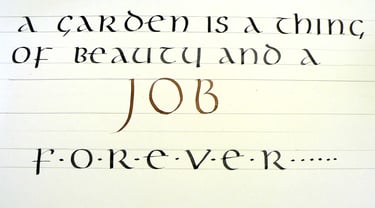 A GARDEN IS A THING
OF BEAUTY AND A
JOB
F·O·R·E·V·E·R······